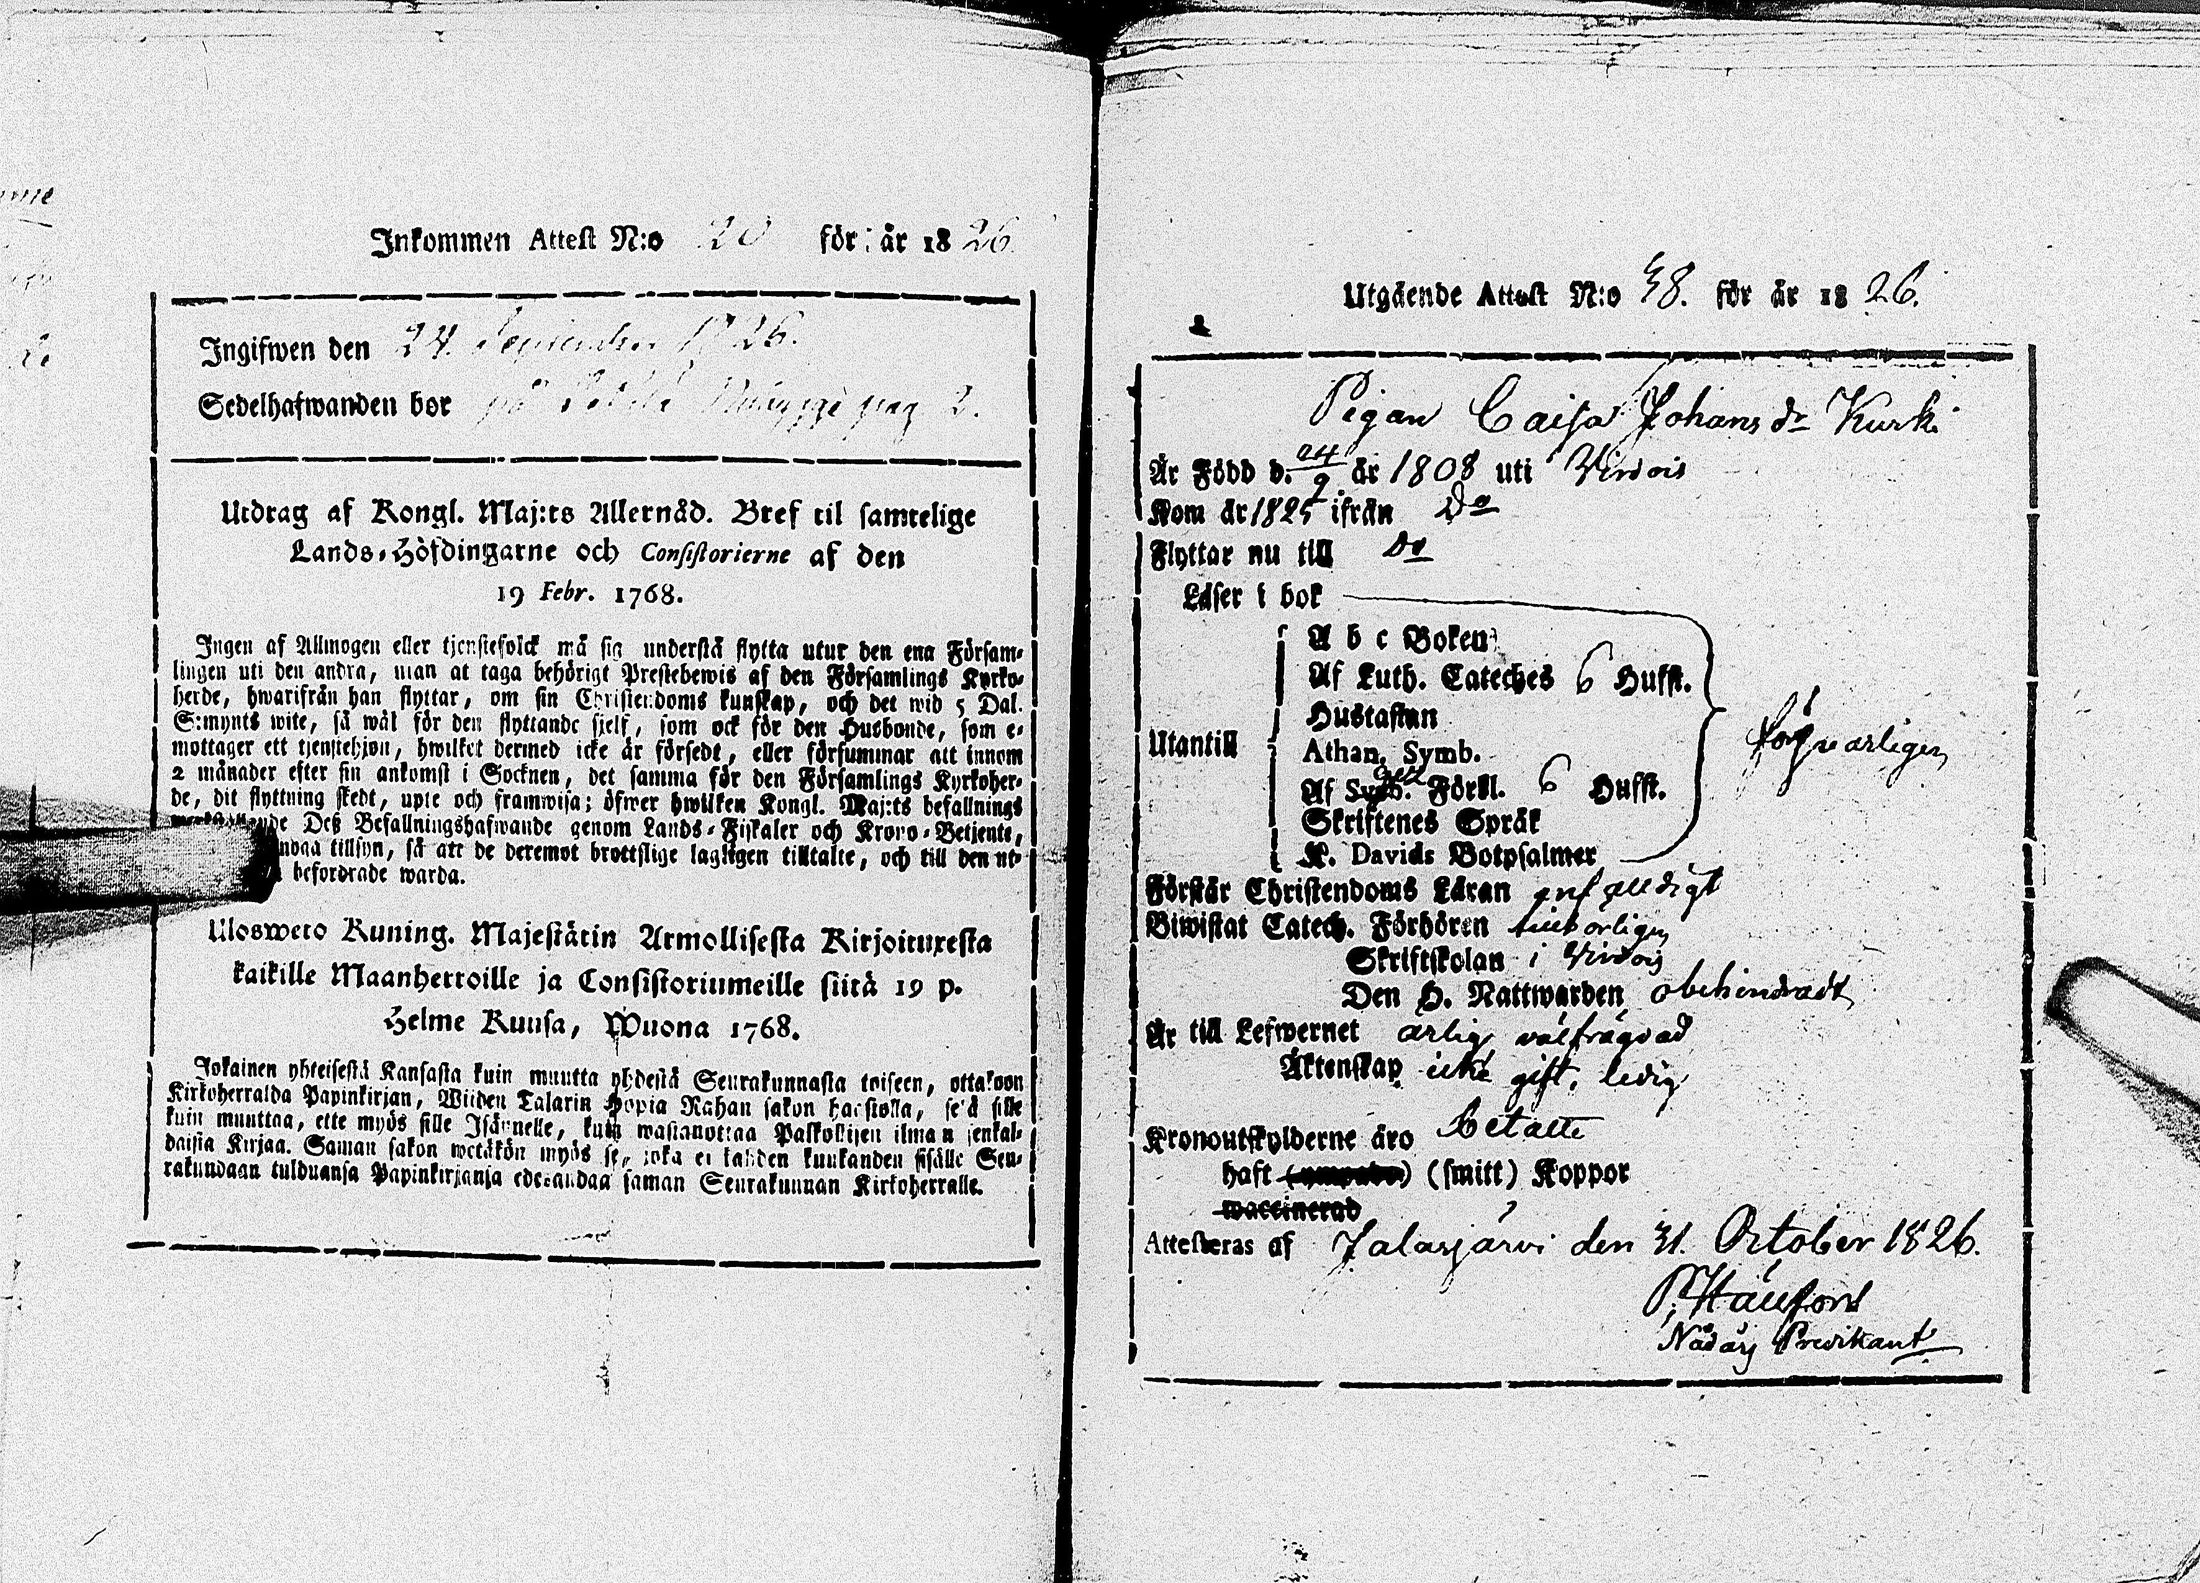 Inkommen Attest N:o 20 för år 1826.
Ingifwen den 24. September 1826.
Sedelhafwanden bor på pag 2.
Utdrag af Kongl. Maj:ts Allernåd. Bref til samtelige
Lands-Höfdingarne och Consistorierne af den
19 Febr. 1768.
Ingen af Allmogen eller tjenstefolck må sig understå flytta utur den ena Försam-
lingen uti den andra, utan at taga behörigt Prestebewis af den Församlings Kyrko-
herde, hwarifrån han flyttar, om sin Christendoms kunskap, och det wid 5 Dal.
S:mynts wite, så wäl för den flyttande sjelf, som ock för den Husbonde, som e-
mottager ett tjenstehjon, hwilket dermed icke är försedt, eller försummar att innom
2 månader efter sin ankomst i Socknen, det samma för den Församlings Kyrkoher-
de, dit flyttning skedt, upte och framwisa; öfwer hwilken Kongl. Maj:ts befallnings
Deß Befallningshafwande genom Lands-Fiskaler och Krono-Betjente,
tillsyn, så att de deremot brottslige lagligen tilltalte, och till den ut-
befordrade warda.
Ulosweto Kuning. Majestätin Armollisesta Kirjoituxesta
kaikille Maanherroille ja Consistoriumeille siitä 19 p.
Helme Kuusa, Wuona 1768.
Jokainen yhteisestä Kansasta kuin muutta yhdestä Seurakunnasta toiseen, ottakoon
Kirkoherralda Papinkirjan, Wiiden Talarin Hopia Rahan sakon haastolla, sekä sille
kuin muuttaa, ette myös sille Isännelle, kuin wastanottaa Palkollisen ilman senkal-
daista Kirjaa. Saman sakon wetäkön myös se, joka ei kahden kuukauden sisälle Seu-
rakundaan tulduansa Papinkirjansa edesandaa saman Seurakunnan Kirkoherralle.
Utgående Attest N:o 38. för år 1826.
Pigan Caisa Johans dr Kurki
Är Född d. 24/9 år 1808 uti Virdois
Kom år 1825 ifrån Do
Flyttar nu till Do
Läser i bok
A b c Boken
Af Luth. Cateches 6 Hufst.
Hustaflan
Utantill
Athan. Symb.
Af Symb. Förkl. 6 Hufst.
Skriftenes Språk
K. Davids Botpsalmer
Förstår Christendoms Läran enfaldigt
Biwistat Catech. Förhören
Skriftskolan i Virdois
Den H. Nattwarden obehindradt
Är till Lefwernet ärlig välfrägdad
Äktenskap icke gift, ledig
Kronoutskylderne äro betalte
haft (ympade) (smitt) Koppor
waccinerad
Attesteras af Jalasjärvi den 31. October 1826.
Nådårs Predikant